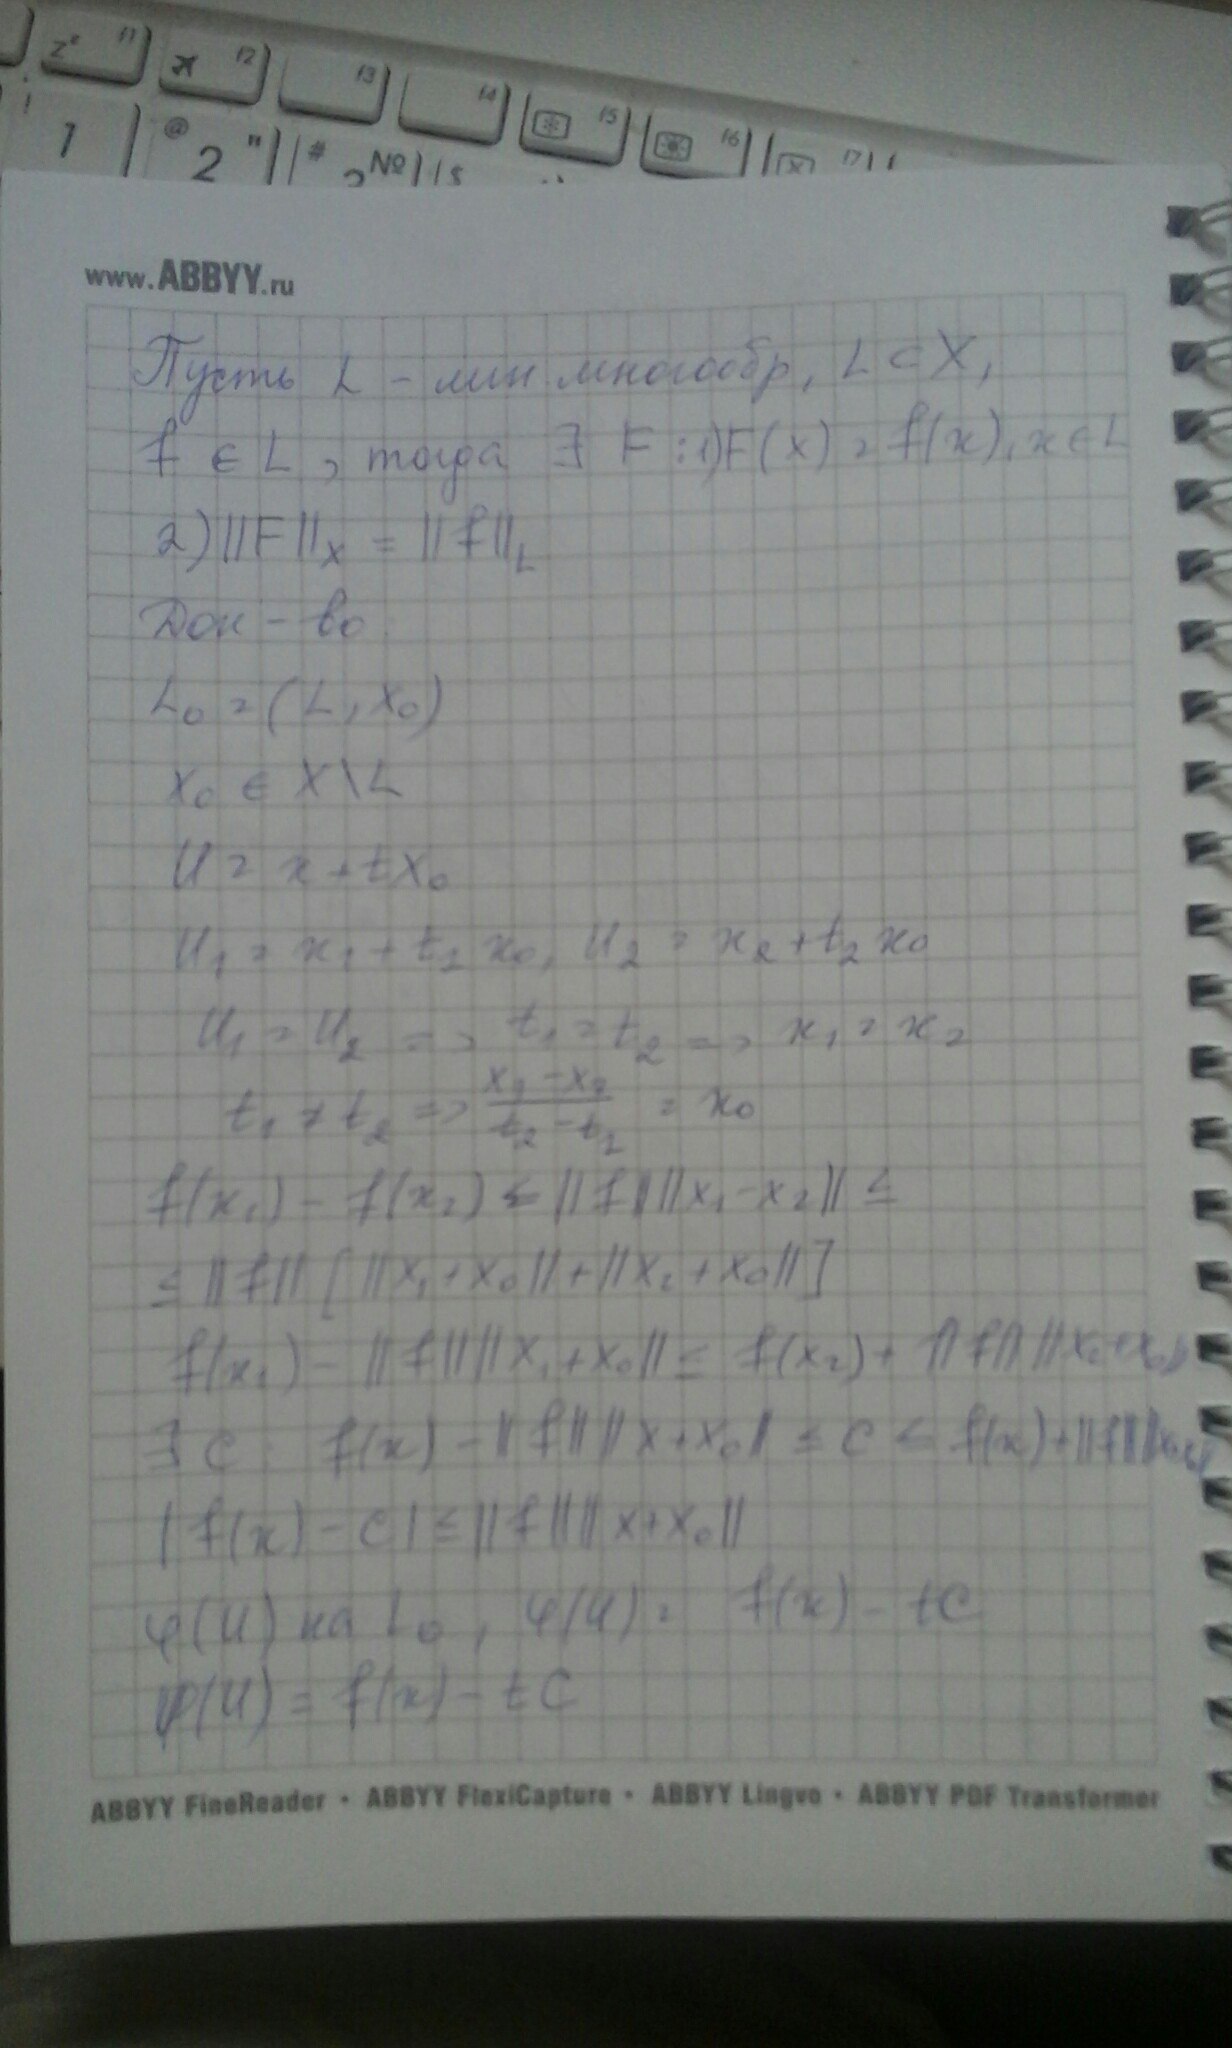 z² 11 x 12 13 14 15 16 17
1 @ 2 " # №
www.ABBYY.ru
Пусть L - лин многообр, L ⊂ X,
f ∈ L, тогда ∃ F : 1) F(x) = f(x), x ∈ L
2) ||F||_X = ||f||_L
Док - во
L₀ = (L, x₀)
x₀ ∈ X \ L
U = x + tx₀
U₁ = x₁ + t₁ x₀, U₂ = x₂ + t₂ x₀
U₁ = U₂ => t₁ = t₂ => x₁ = x₂
t₁ ≠ t₂ => (x₁ - x₂)/(t₂ - t₁) = x₀
f(x₁) - f(x₂) ≤ ||f|| ||x₁ - x₂|| ≤
≤ ||f|| [ ||x₁ + x₀|| + ||x₂ + x₀|| ]
f(x₁) - ||f|| ||x₁ + x₀|| ≤ f(x₂) + ||f|| ||x₂ + x₀||
∃ C f(x) - ||f|| ||x + x₀|| ≤ C ≤ f(x) + ||f||
|f(x) - C| ≤ ||f|| ||x + x₀||
φ(U) на L₀, φ(U) = f(x) - tC
φ(U) = f(x) - tC
ABBYY FineReader • ABBYY FlexiCapture • ABBYY Lingvo • ABBYY PDF Transformer